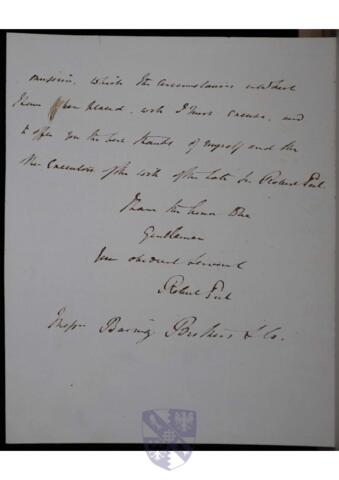 omission, which the circumstances
I have placed, will I trust excuse, and
to offer you the best thanks of myself and the
the Executors of the will of the late Sir Robert Peel.
I have the honor to be
Gentlemen
Your obedient Servant
Robert Peel
Messrs Baring Brothers & Co.